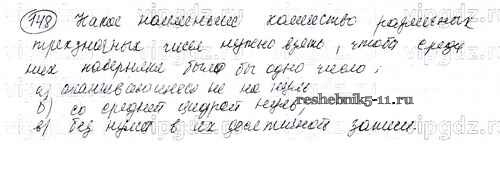 748 Какое наименьшее количество различных
трехзначных чисел нужно взять, чтобы среди
них наверняка было бы одно число:
а) оканчивающееся не на нуль
б) со средней цифрой нуль;
reshebnik5-11.ru
в) без нулей в их десятичной записи